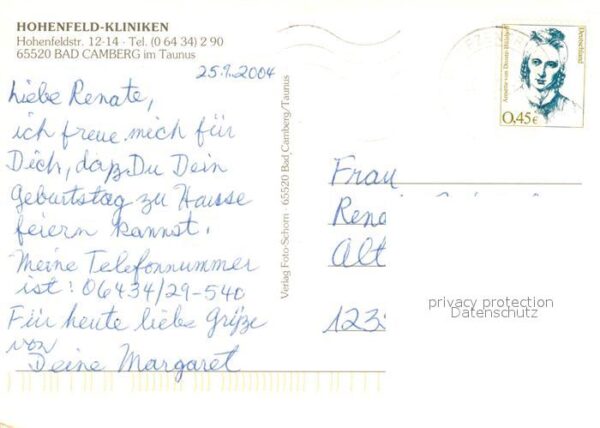 HOHENFELD-KLINIKEN
Hohenfeldstr. 12-14 · Tel. (0 64 34) 2 90
65520 BAD CAMBERG im Taunus
25.9.2004
Liebe Renate,
ich freue mich für
Dich, daß Du Dein
Geburtstag zu Hause
feiern kannst.
Meine Telefonnummer
ist: 06434/29-540
Für heute liebe Grüße
von
Deine Margaret
Verlag Foto-Schorn · 65520 Bad Camberg/Taunus
Annette von Droste-Hülshoff
Deutschland
0,45€
Frau
Rena
Alt
123
privacy protection
Datenschutz